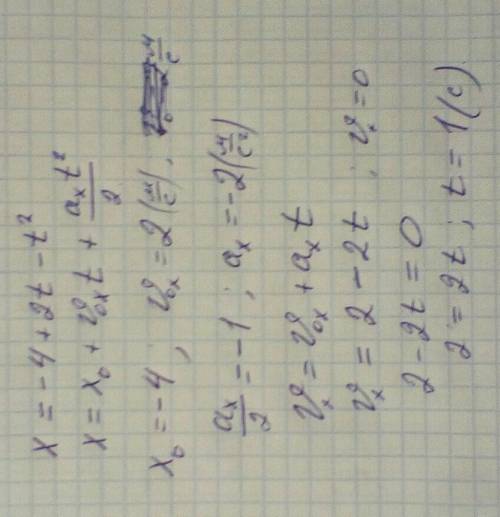 x = -4 + 2t - t²
x = x₀ + v₀ₓt + aₓt²/2
x₀ = -4 ; v₀ₓ = 2 (м/с),
aₓ/2 = -1 ; aₓ = -2 (м/с²)
vₓ = v₀ₓ + aₓt
vₓ = 2 - 2t ; vₓ = 0
2 - 2t = 0
2 = 2t ; t = 1 (с)